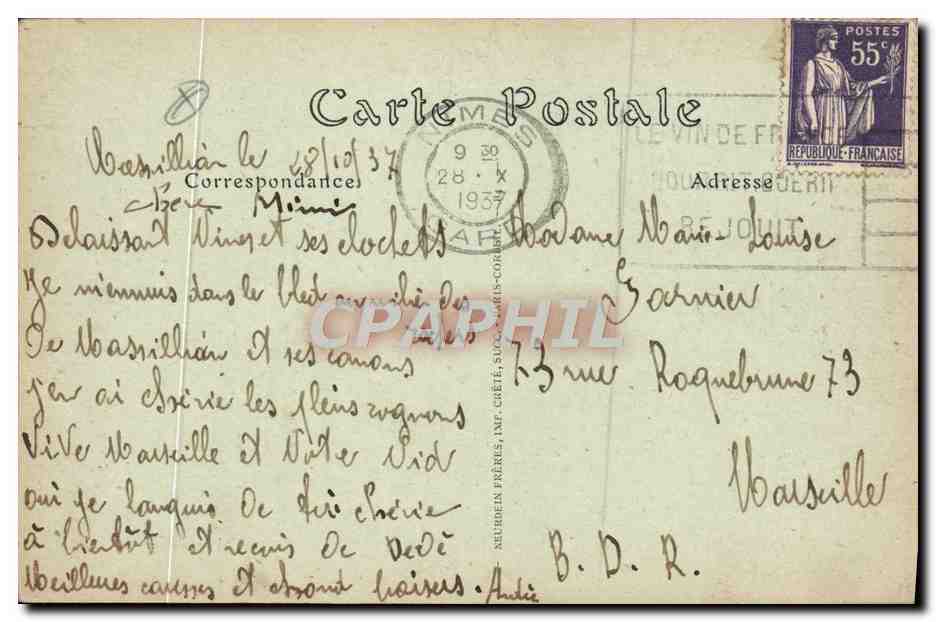 Carte Postale
POSTES
55c
REPUBLIQUE FRANÇAISE
NIMES
GARE
9 30
28 X
1937
LE VIN DE FRANCE
NOURRIT GUERIT
REJOUIT
Correspondance
Adresse
Massillian le 28/10/37
chère Mimi
Delaissant Nimes et ses clochets
Je m'ennuis dans le bled des
De Massillian et ses canons
j'en ai chérie les pleins rognons
Vive Marseille et Notre Nid
oui je languis de toi chérie
à bientôt et reçois de Dedé
Meilleures caresses et chaud baisers. André
Madame Marie-Louise
Garnier
73 rue Roquebrune 73
Marseille
B. D. R.
NEURDEIN FRÈRES, IMP. CRÉTÉ, SUCC. - PARIS-CORBEIL
CPAPHIL